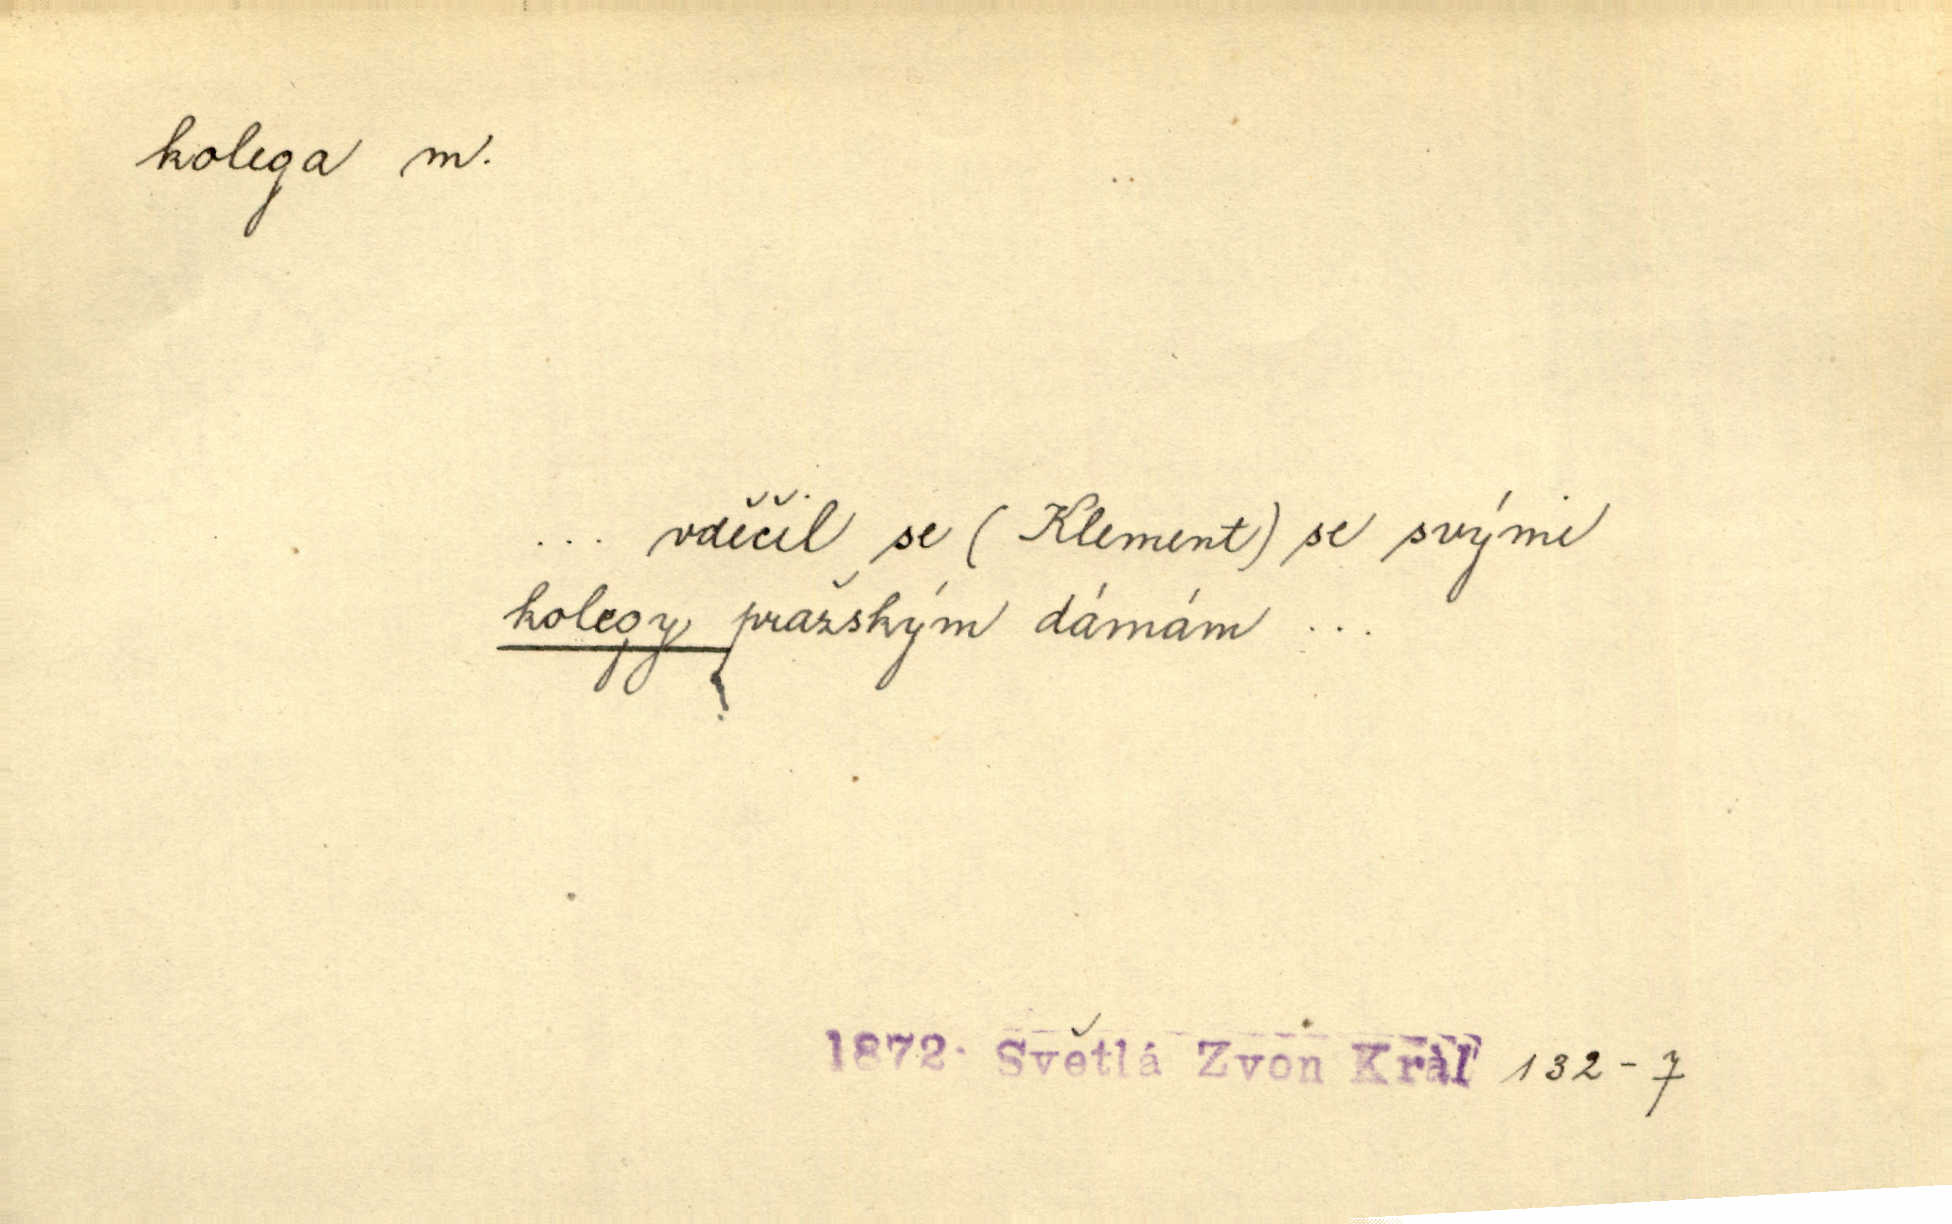 kolega m.
... vděčil se (Klement) se svými
kolegy pražským dámám ...
1872. Světlá Zvon Král 132-7